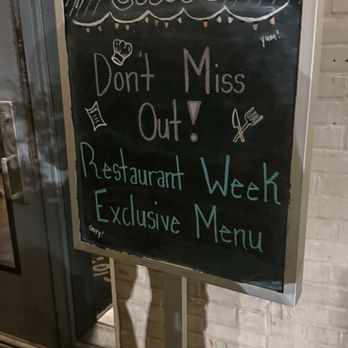 yum!
Don't Miss
Out!
Restaurant Week
Exclusive Menu
tasty!